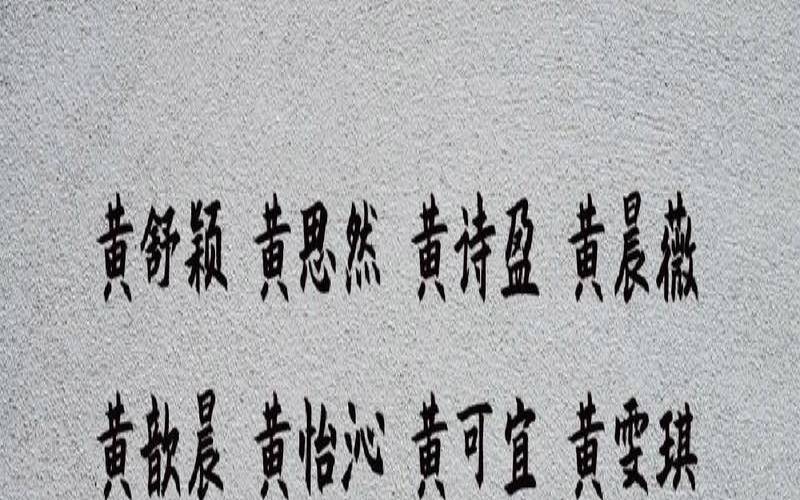 黄舒颖 黄思然 黄诗盈 黄晨薇
黄歆晨 黄怡沁 黄可宜 黄雯琪